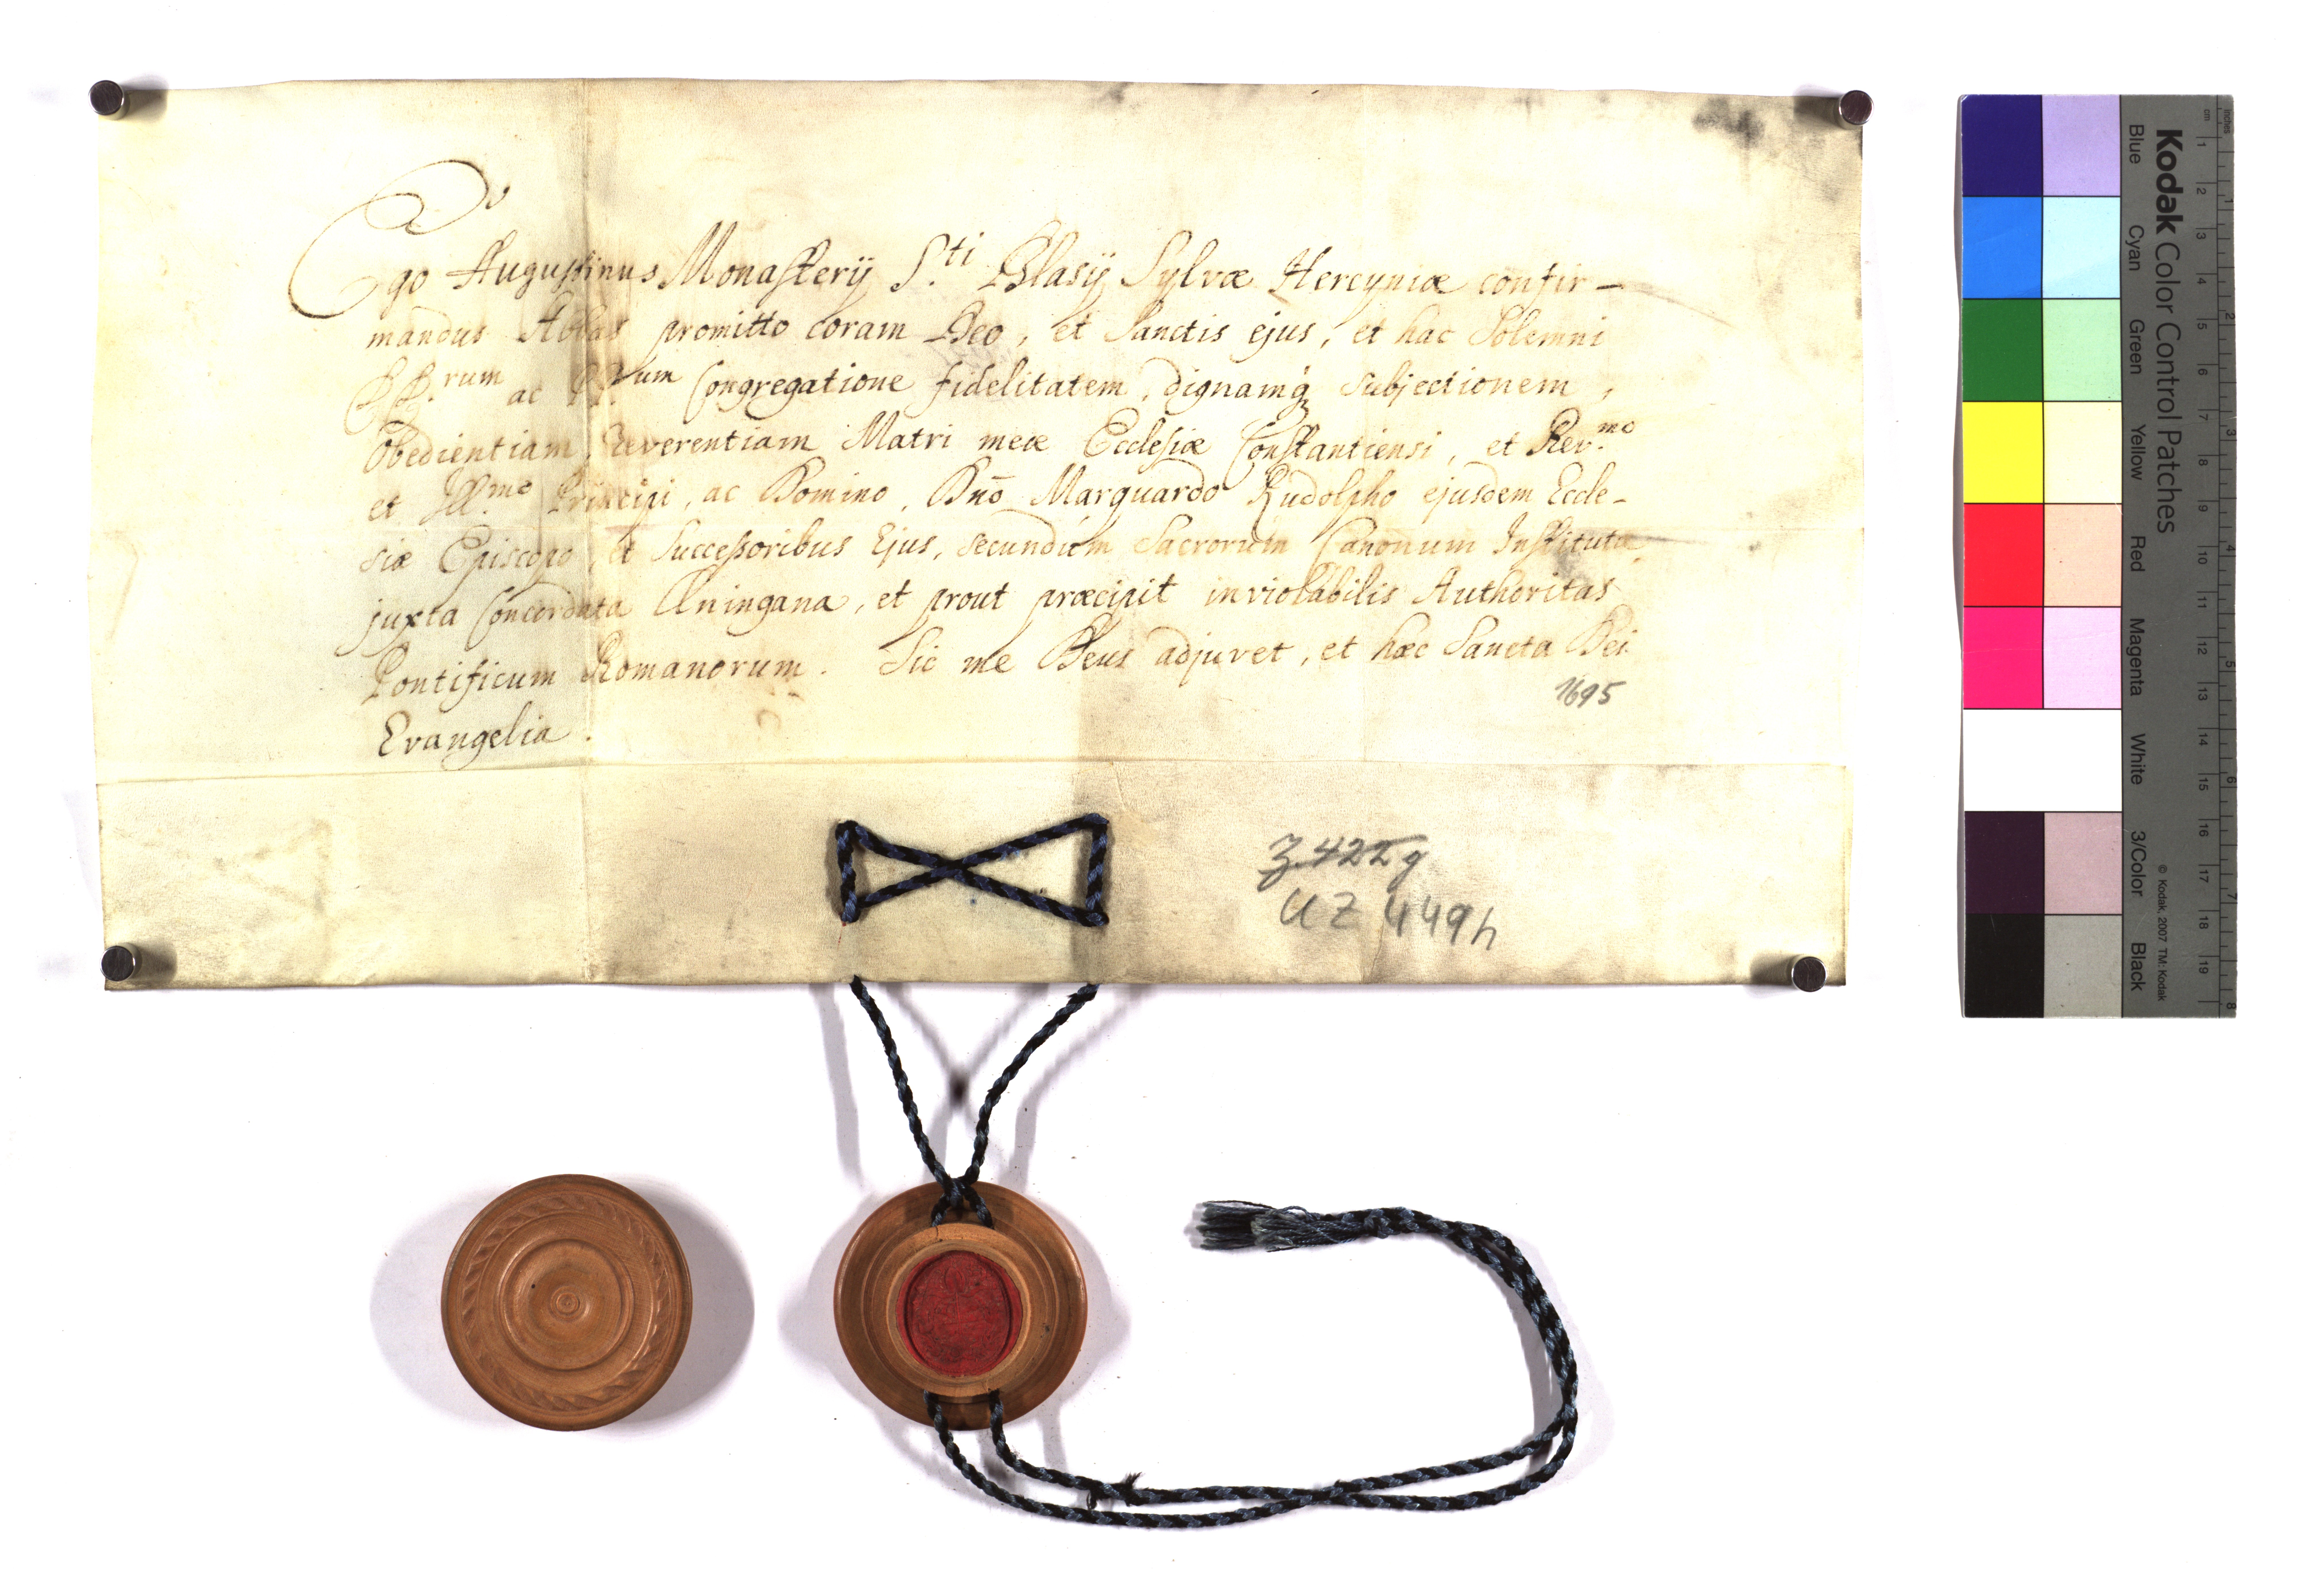 Ego Augustinus Monasterij S.ti Blasij Sylvæ Hercyniæ confir-
mandus Abbas promitto coram Deo, et Sanctis ejus, et hac Solemni
PP.rum ac FF.rum Congregatione fidelitatem, dignamq₃ subjectionem,
Obedientiam, Reverentiam Matri meæ Ecclesiæ Constantiensi, et Rev.mo
et Ill.mo Principi, ac Domino, Dn̄o Marquardo Rudolpho ejusdem Eccle-
siæ Episcopo, et Successoribus Ejus, secundùm Sacrorum Canonum Instituta,
juxta Concordata Æningana, et prout præcipit inviolabilis Authoritas
Pontificum Romanorum. Sic me Deus adjuvet, et hæc Sancta Dei
Evangelia.
1695
Z 422g
UZ 449h
Kodak Color Control Patches
Blue Cyan Green Yellow Red Magenta White 3/Color Black
© Kodak, 2007 TM: Kodak
cm 1 2 3 4 5 6 7 8 9 10 11 12 13 14 15 16 17 18 19
inches 1 2 3 4 5 6 7 8